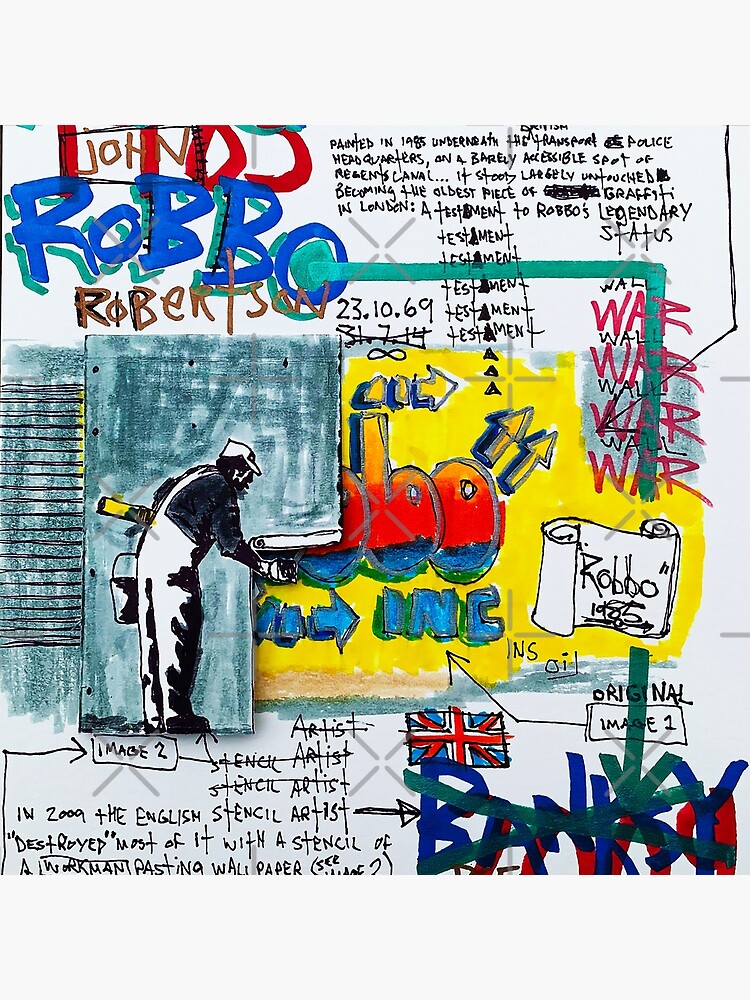 JOHN
ROBBO
ROBERTSON
BRITISH
PAINTED IN 1985 UNDERNEATH THE TRANSPORT POLICE
HEADQUARTERS, ON A BARELY ACCESSIBLE SPOT OF
REGENTS CANAL... IT STOOD LARGELY UNTOUCHED
BECOMING THE OLDEST PIECE OF GRAFFITI
IN LONDON: A TESTAMENT TO ROBBO'S LEGENDARY
TESTAMENT STATUS
TESTAMENT
TESTAMENT
TESTAMENT
TESTAMENT
A
A
A
23.10.69
31.7.14
∞
WALL
WAR
WALL
WAR
WALL
WAR
WALL
WAR
bbo
INC
"Robbo"
1985
INS
Oil
ORIGINAL
IMAGE 1
IMAGE 2
ARTIST
STENCIL ARTIST
STENCIL ARTIST
IN 2009 THE ENGLISH STENCIL ARTIST
"DESTROYED" MOST OF IT WITH A STENCIL OF
A WORKMAN PASTING WALLPAPER (SEE
IMAGE 2)
BANKSY